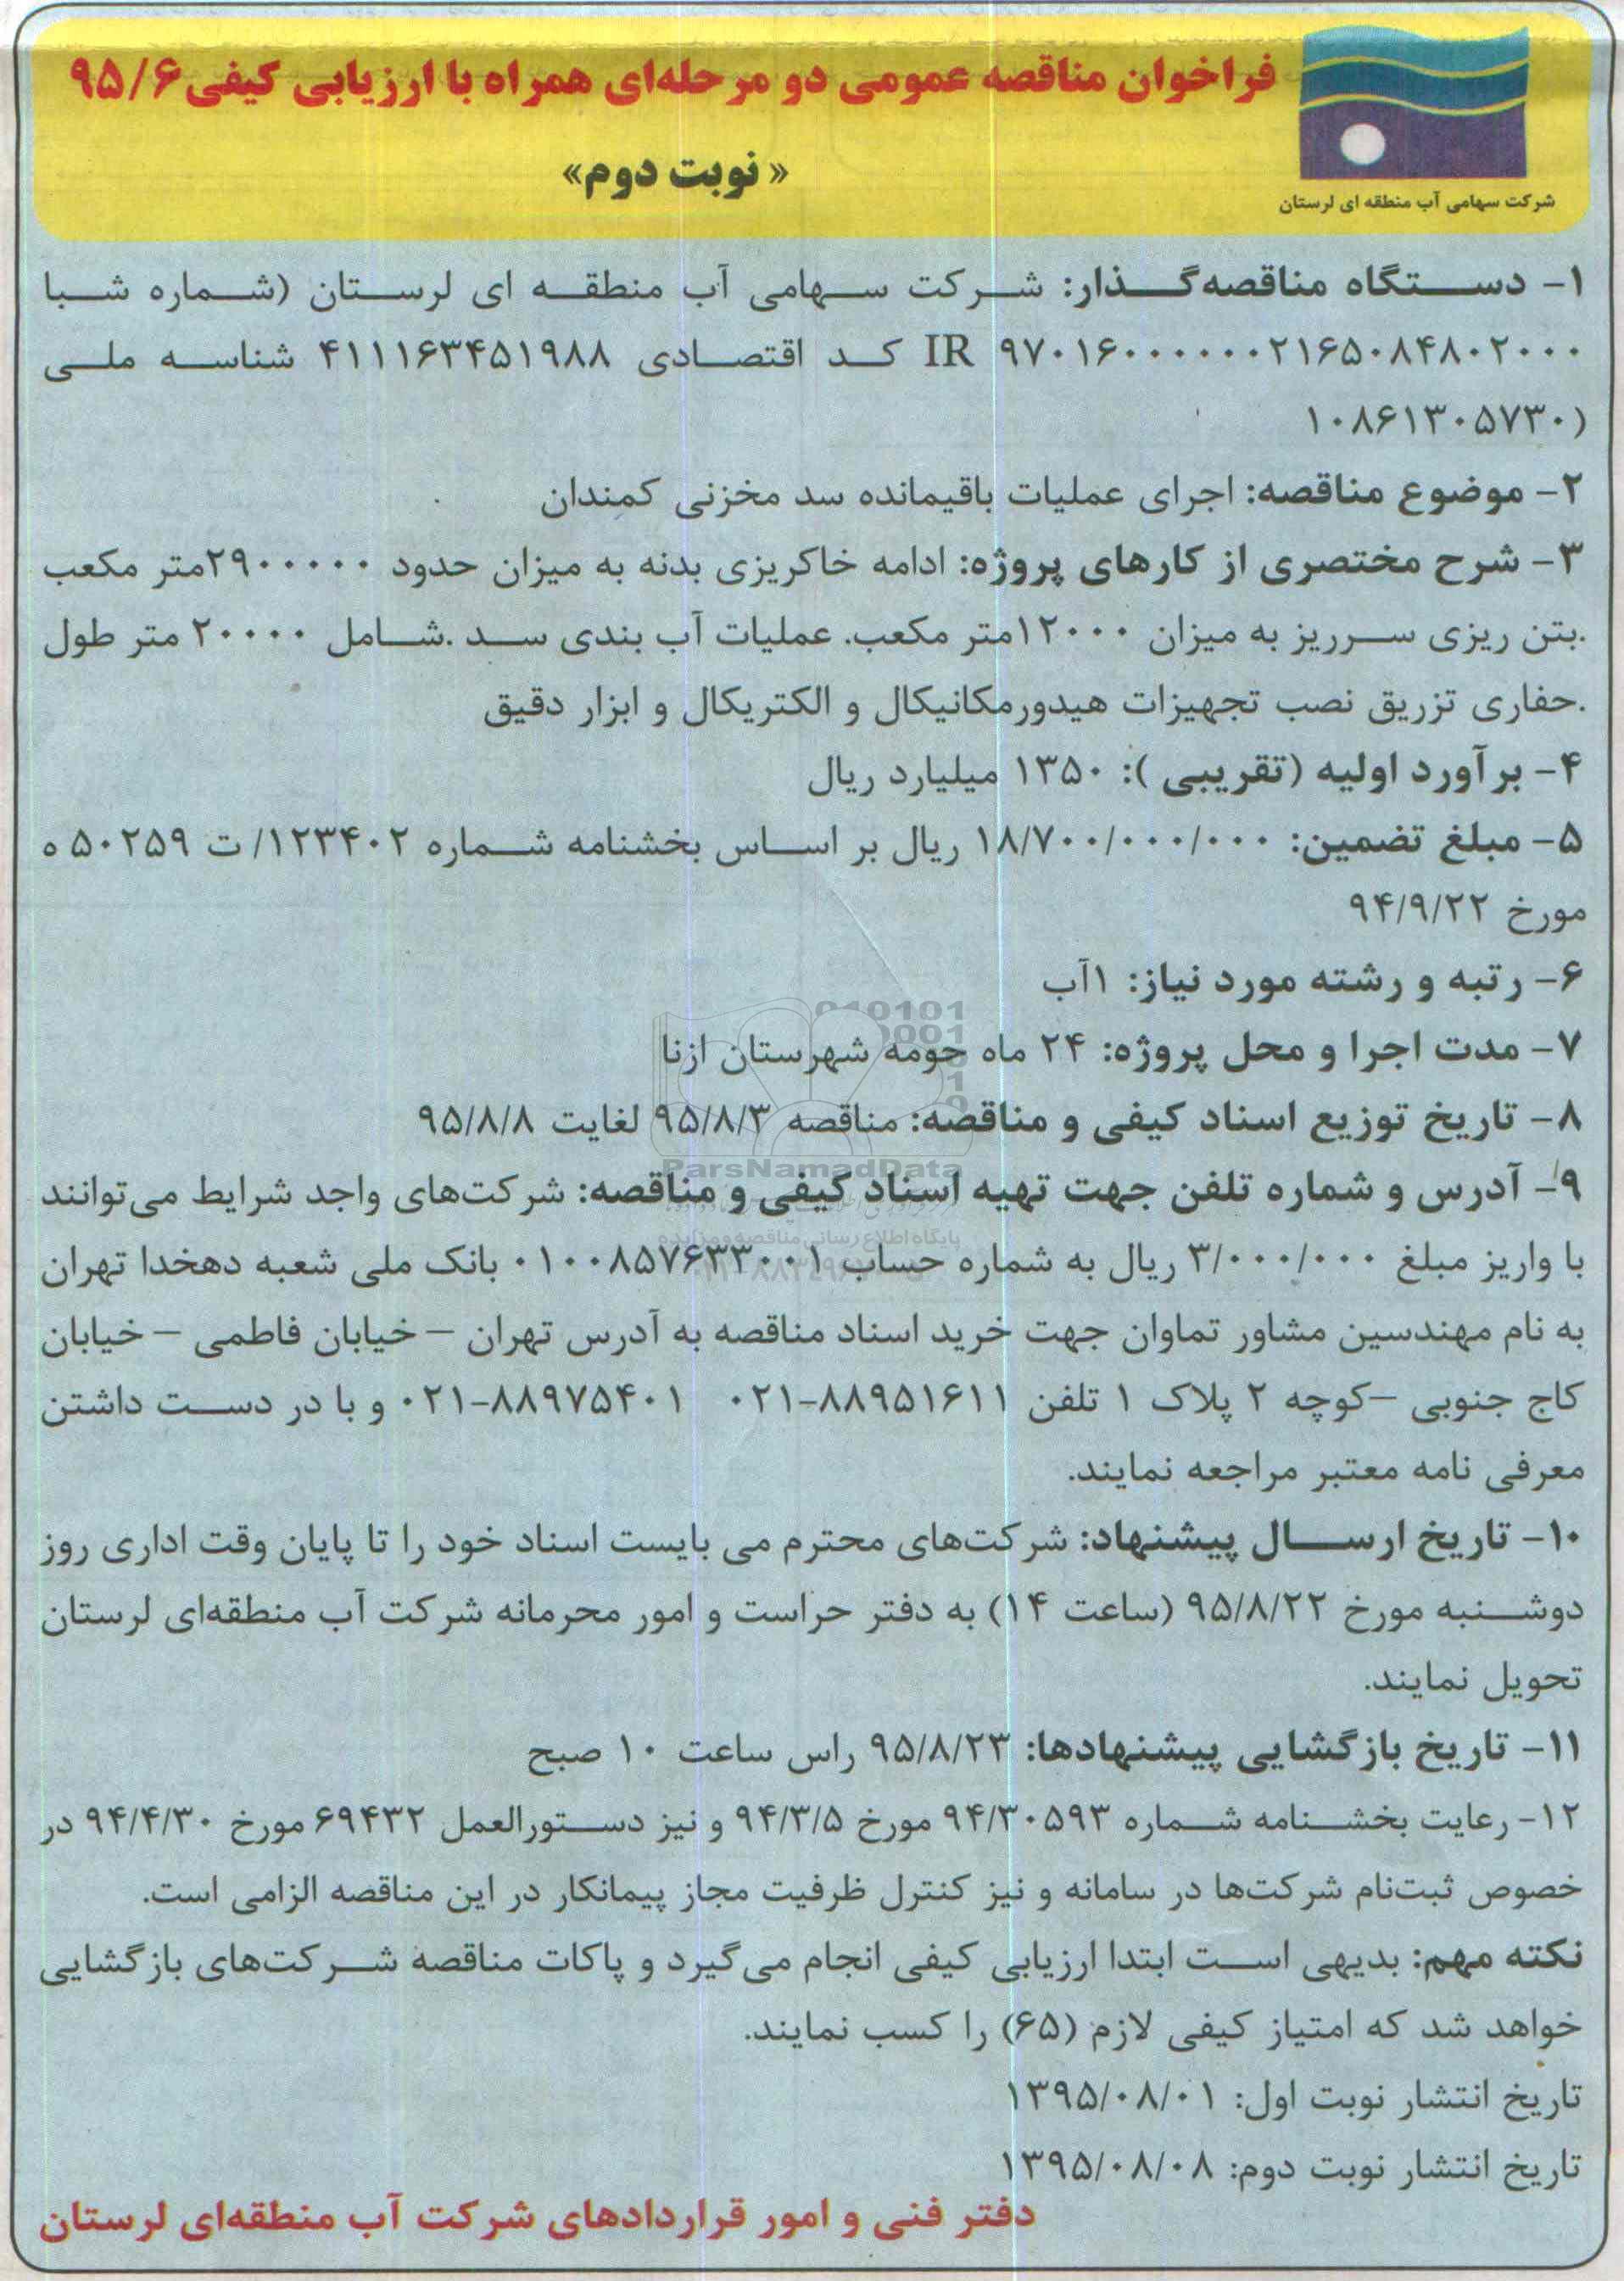 فراخوان مناقصه عمومی دو مرحله‌ای همراه با ارزیابی کیفی ۹۵/۶
« نوبت دوم»
شرکت سهامی آب منطقه ای لرستان
۱- دستگاه مناقصه‌گذار: شرکت سهامی آب منطقه ای لرستان (شماره شبا
IR ۹۷۰۱۶۰۰۰۰۰۰۰۲۱۶۵۰۸۴۸۰۲۰۰۰ کد اقتصادی ۴۱۱۱۶۳۴۵۱۹۸۸ شناسه ملی
(۱۰۸۶۱۳۰۵۷۳۰
۲- موضوع مناقصه: اجرای عملیات باقیمانده سد مخزنی کمندان
۳- شرح مختصری از کارهای پروژه: ادامه خاکریزی بدنه به میزان حدود ۲۹۰۰۰۰۰متر مکعب
.بتن ریزی سرریز به میزان ۱۲۰۰۰متر مکعب. عملیات آب بندی سد .شامل ۲۰۰۰۰ متر طول
.حفاری تزریق نصب تجهیزات هیدورمکانیکال و الکتریکال و ابزار دقیق
۴- برآورد اولیه (تقریبی ): ۱۳۵۰ میلیارد ریال
۵- مبلغ تضمین: ۱۸/۷۰۰/۰۰۰/۰۰۰ ریال بر اساس بخشنامه شماره ۱۲۳۴۰۲/ ت ۵۰۲۵۹ ه
مورخ ۹۴/۹/۲۲
۶- رتبه و رشته مورد نیاز: ۱آب
۷- مدت اجرا و محل پروژه: ۲۴ ماه حومه شهرستان ازنا
۸- تاریخ توزیع اسناد کیفی و مناقصه: مناقصه ۹۵/۸/۳ لغایت ۹۵/۸/۸
ParsNamadData
۹- آدرس و شماره تلفن جهت تهیه اسناد کیفی و مناقصه: شرکت‌های واجد شرایط می‌توانند
پایگاه اطلاع رسانی مناقصه و مزایده
با واریز مبلغ ۳/۰۰۰/۰۰۰ ریال به شماره حساب ۰۱۰۰۸۵۷۶۳۳۰۰۱ بانک ملی شعبه دهخدا تهران
به نام مهندسین مشاور تماوان جهت خرید اسناد مناقصه به آدرس تهران – خیابان فاطمی – خیابان
کاج جنوبی –کوچه ۲ پلاک ۱ تلفن ۸۸۹۵۱۶۱۱-۰۲۱ ۸۸۹۷۵۴۰۱-۰۲۱ و با در دست داشتن
معرفی نامه معتبر مراجعه نمایند.
۱۰- تاریخ ارسال پیشنهاد: شرکت‌های محترم می بایست اسناد خود را تا پایان وقت اداری روز
دوشنبه مورخ ۹۵/۸/۲۲ (ساعت ۱۴) به دفتر حراست و امور محرمانه شرکت آب منطقه‌ای لرستان
تحویل نمایند.
۱۱- تاریخ بازگشایی پیشنهادها: ۹۵/۸/۲۳ راس ساعت ۱۰ صبح
۱۲- رعایت بخشنامه شماره ۹۴/۳۰۵۹۳ مورخ ۹۴/۳/۵ و نیز دستورالعمل ۶۹۴۳۲ مورخ ۹۴/۴/۳۰ در
خصوص ثبت‌نام شرکت‌ها در سامانه و نیز کنترل ظرفیت مجاز پیمانکار در این مناقصه الزامی است.
نکته مهم: بدیهی است ابتدا ارزیابی کیفی انجام می‌گیرد و پاکات مناقصه شرکت‌های بازگشایی
خواهد شد که امتیاز کیفی لازم (۶۵) را کسب نمایند.
تاریخ انتشار نوبت اول: ۱۳۹۵/۰۸/۰۱
تاریخ انتشار نوبت دوم: ۱۳۹۵/۰۸/۰۸
دفتر فنی و امور قراردادهای شرکت آب منطقه‌ای لرستان